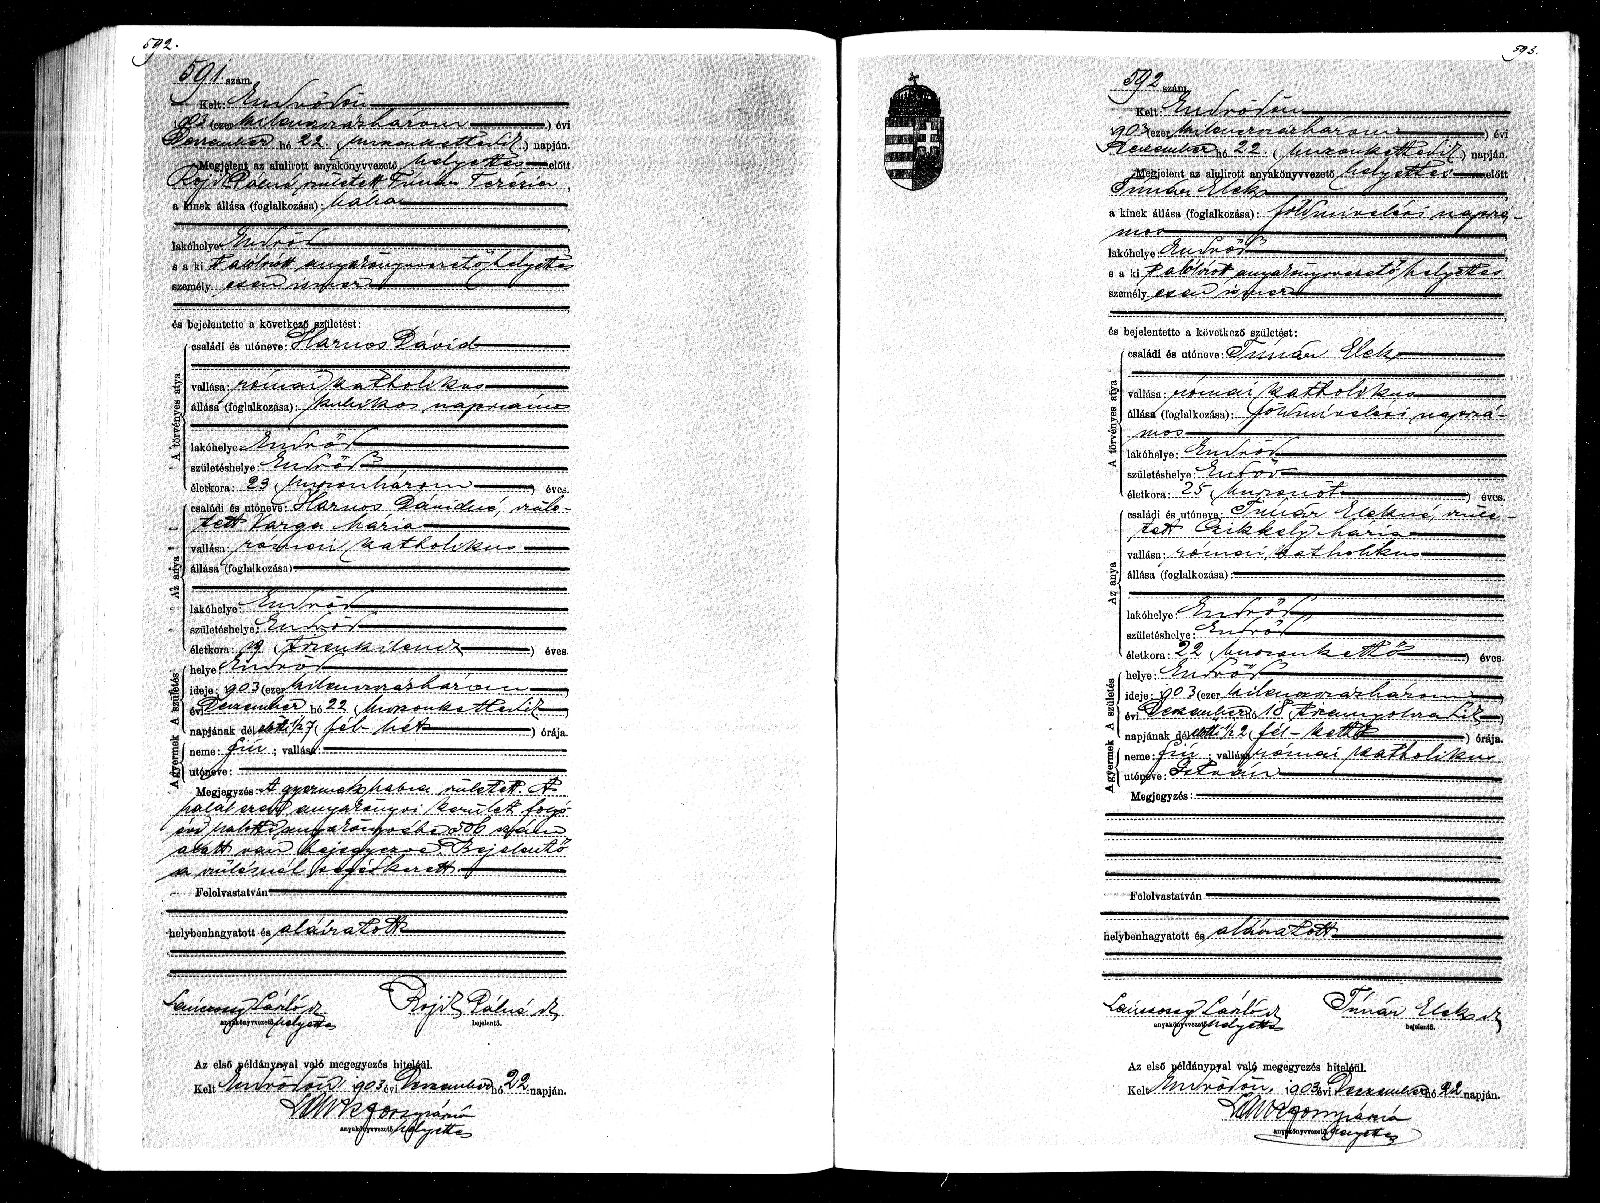 592.
591 szám.
Kelt: Endrődön
903 (ezer kilenczszázhárom) évi
Deczember hó 22 (huszonkettedik) napján.
Megjelent az alulirott anyakönyvvezető helyettes előtt
Rojik Pálné született Terézia,
a kinek állása (foglalkozása): bába
lakóhelye: Endrőd
s a ki t alólirott anyakönyvvezető helyettes
személyesen ismer
és bejelentette a következő születést:
A törvényes atya
családi és utóneve: Harnos Dávid
vallása: római katholikus
állása (foglalkozása): kubikos napszámos
lakóhelye: Endrőd
születéshelye: Endrőd
életkora: 23 huszonhárom éves.
Az anya
családi és utóneve: Harnos Dávidné, szüle-
tett Varga Mária
vallása: római katholikus
állása (foglalkozása)
lakóhelye: Endrőd
születéshelye: Endrőd
életkora: 19 tizenkilencz) éves.
A gyermek A születés
helye Endrőd
ideje: 1903 (ezer kilenczszázhárom
évi Deczember hó 22 (huszonkettedik
napjának dél előtt 1/2 7 (fél hét) órája.
neme: fiú; vallása:
utóneve:
Megjegyzés: A gyermek halva született. A
halál eset anyakönyvi kerület folyó
évi halotti anyakönyvébe 306 szám
alatt van bejegyezve. Bejelentő
a szülésnél segédkezett
Felolvastatván
helybenhagyatott és aláiratott
László
anyakönyvvezető helyettes
Rojik Pálné sk
bejelentő.
Az első példánynyal való megegyezés hiteléül.
Kelt Endrődön, 1903 évi Deczember hó 22 napján.
anyakönyvvezető helyettes
593.
592 szám.
Kelt: Endrődön
1903 (ezer kilenczszázhárom) évi
Deczember hó 22. (huszonkettedik) napján.
Megjelent az alulirott anyakönyvvezető helyettes előtt
Tímár Elek
a kinek állása (foglalkozása): földmivelési napszá-
mos
lakóhelye: Endrőd
s a ki t alólirott anyakönyvvezető helyettes
személyesen ismer
és bejelentette a következő születést:
A törvényes atya
családi és utóneve: Tímár Elek
vallása: római katholikus
állása (foglalkozása): földmivelési napszá-
mos
lakóhelye: Endrőd
születéshelye: Endrőd
életkora: 25 huszonöt) éves.
Az anya
családi és utóneve: Tímár Elekné, szüle-
tett Czikkely Mária
vallása: római katholikus
állása (foglalkozása):
lakóhelye Endrőd
születéshelye: Endrőd
életkora: 22 huszonkettő) éves.
A gyermek A születés
helye: Endrőd
ideje: 1903 (ezer kilenczszázhárom
évi Deczember hó 18 tizennyolczadik)
napjának dél előtt 1/2 2 (fél-kettő) órája.
neme: fiú; vallása: római katholikus
utóneve: István
Megjegyzés:
Felolvastatván
helybenhagyatott és aláiratott
László
anyakönyvvezető helyettes
Tímár Elek sk
bejelentő.
Az első példánynyal való megegyezés hiteléül.
Kelt Endrődön, 1903 évi Deczember hó 22 napján.
anyakönyvvezető helyettes